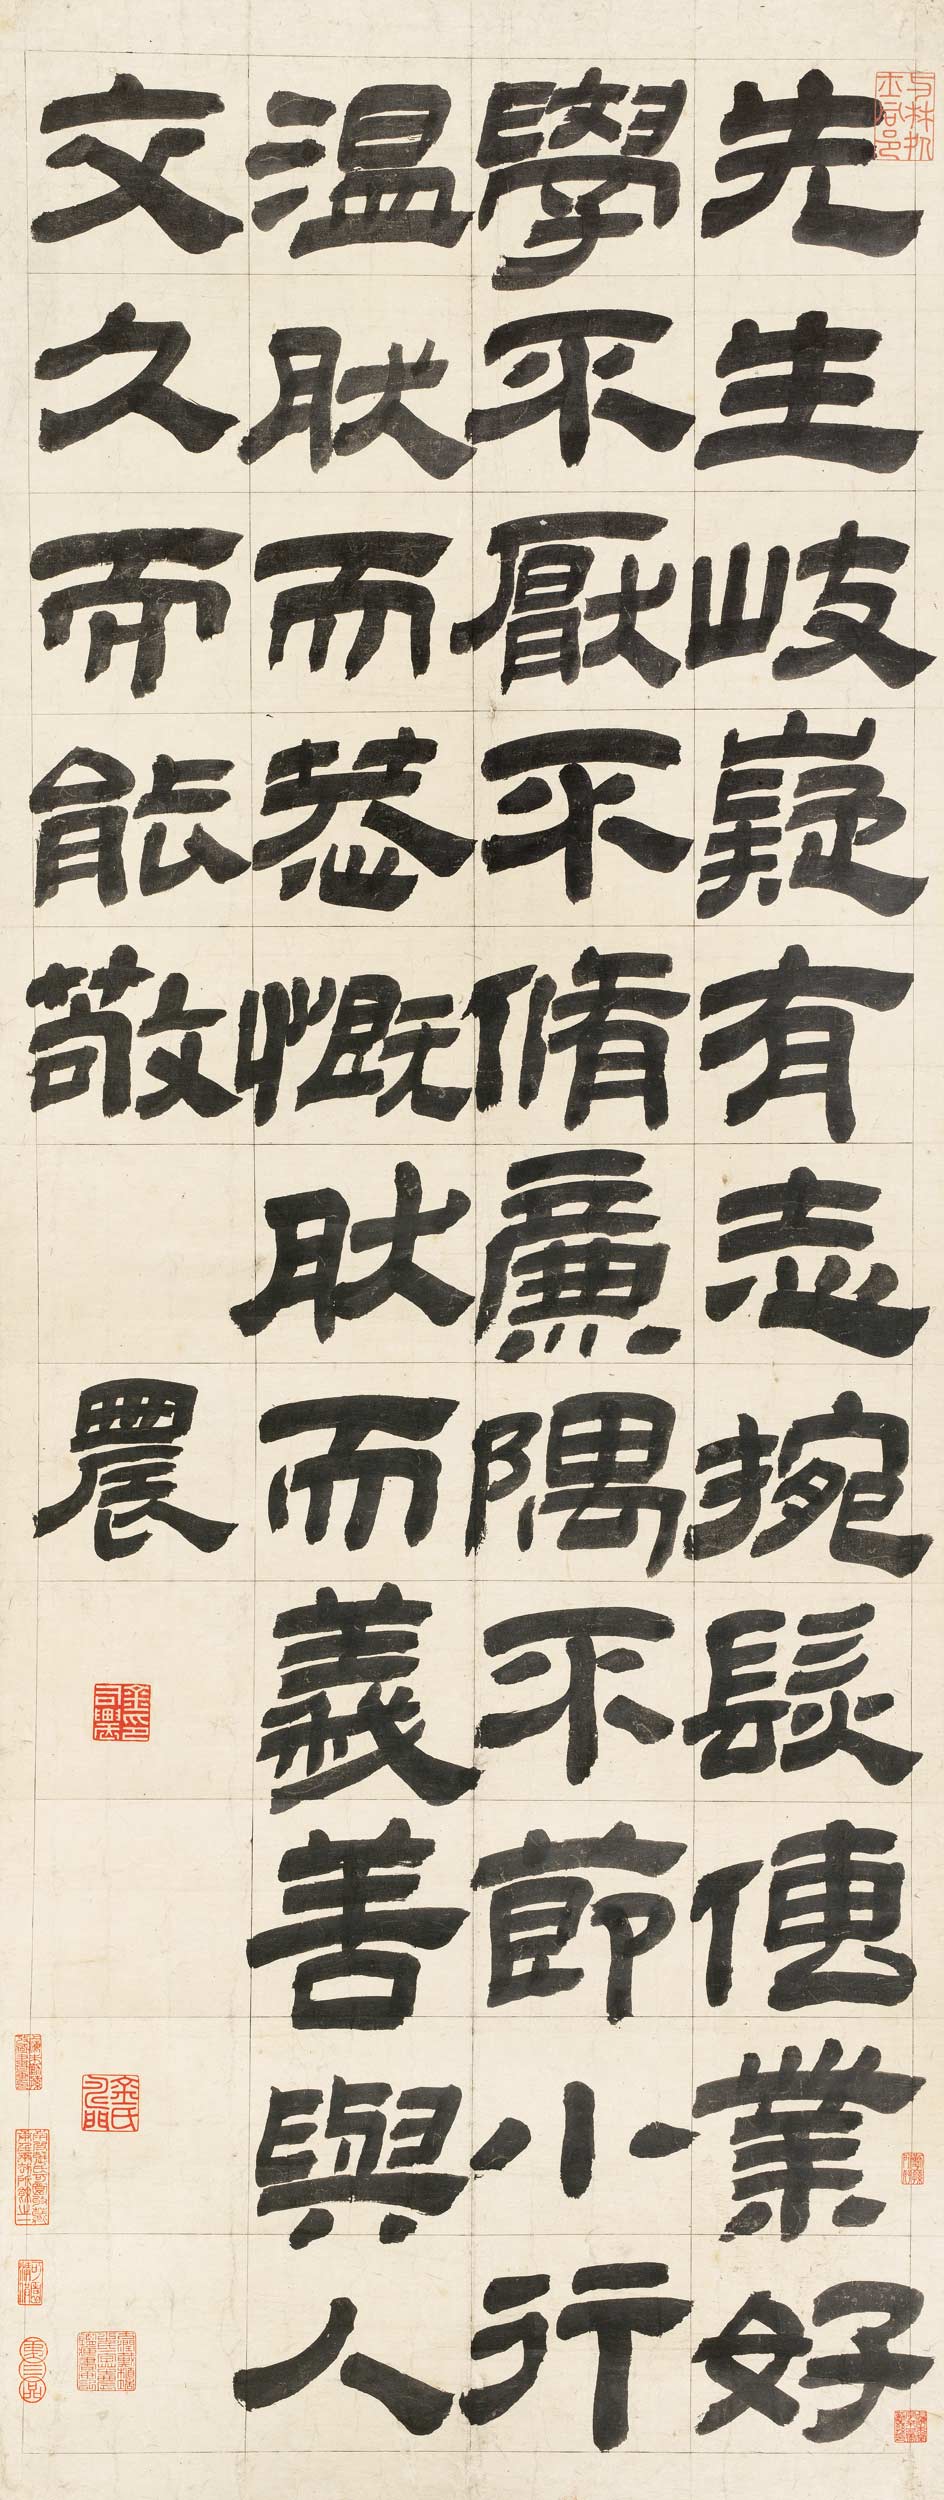 先生岐嶷有志捥髮傳業好
學不厭不脩廉隅不節小行
溫肰而恭慨肰而義善與人
交久而能敬
農
金氏